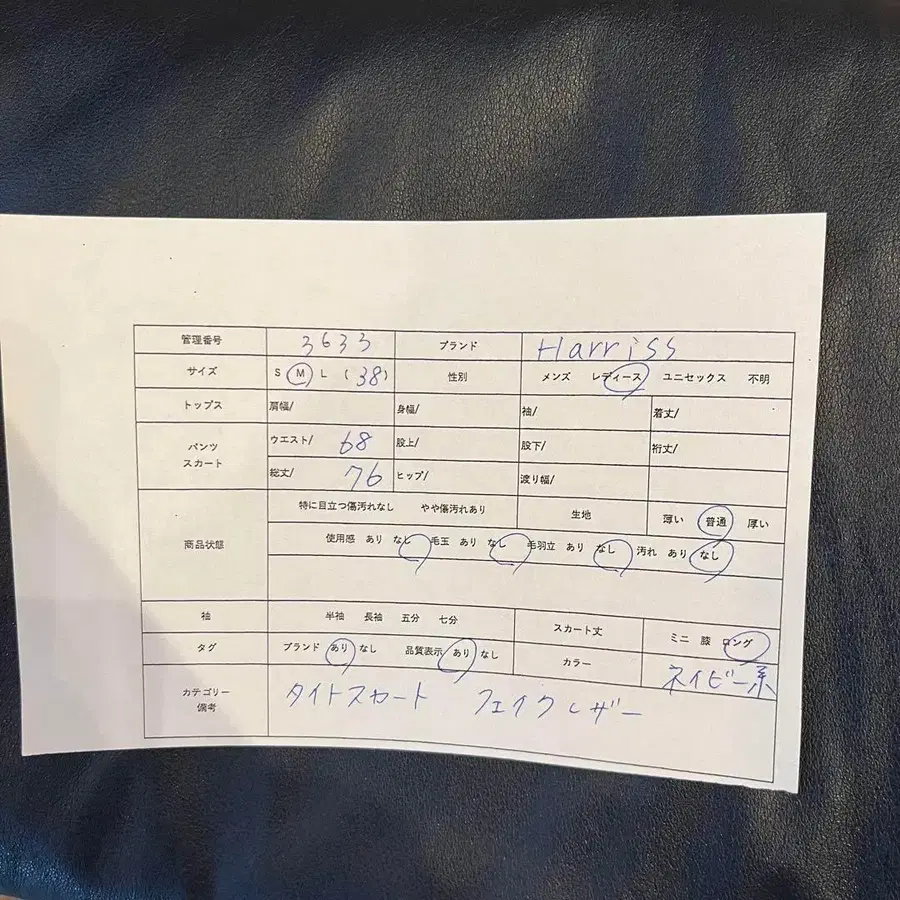 管理番号 3633 ブランド Harriss
サイズ S M L (38) 性別 メンズ レディース ユニセックス 不明
トップス 肩幅/ 身幅/ 袖/ 着丈/
パンツ スカート ウエスト/ 68 股上/ 股下/ 裄丈/
総丈/ 76 ヒップ/ 渡り幅/
商品状態 特に目立つ傷汚れなし やや傷汚れあり 生地 薄い 普通 厚い
使用感 あり なし 毛玉 あり なし 毛羽立 あり なし 汚れ あり なし
袖 半袖 長袖 五分 七分 スカート丈 ミニ 膝 ロング
タグ ブランド あり なし 品質表示 あり なし カラー ネイビー系
カテゴリー 備考 タイトスカート フェイクレザー